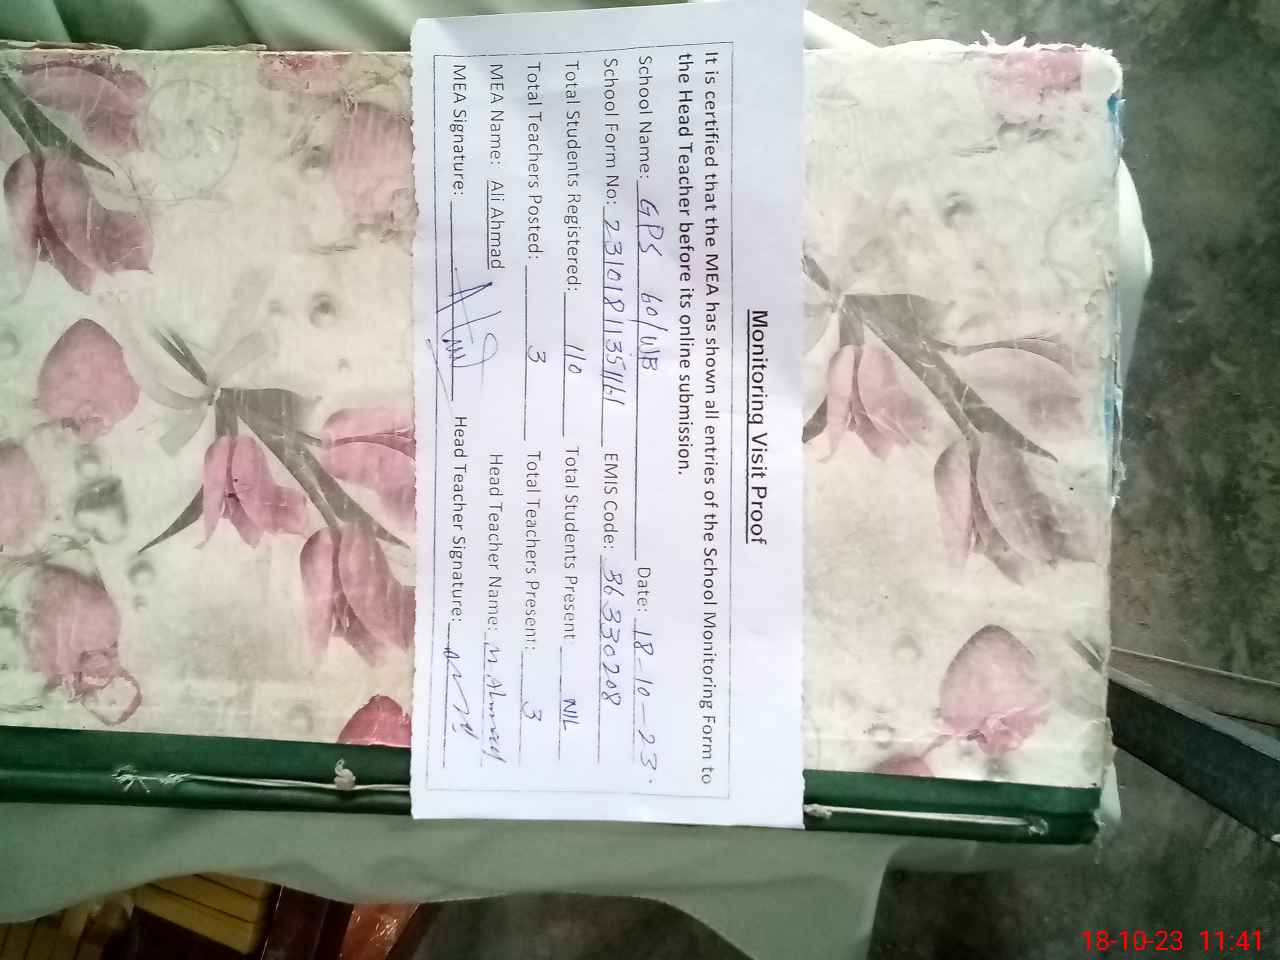 Monitoring Visit Proof
It is certified that the MEA has shown all entries of the School Monitoring Form to
the Head Teacher before its online submission.
School Name: GPS 60/WB Date: 18-10-23.
School Form No: EMIS Code: 36330208
Total Students Registered: 110 Total Students Present NIL
Total Teachers Posted: 3 Total Teachers Present: 3
MEA Name: Ali Ahmad Head Teacher Name:
MEA Signature: Head Teacher Signature:
18-10-23 11:41